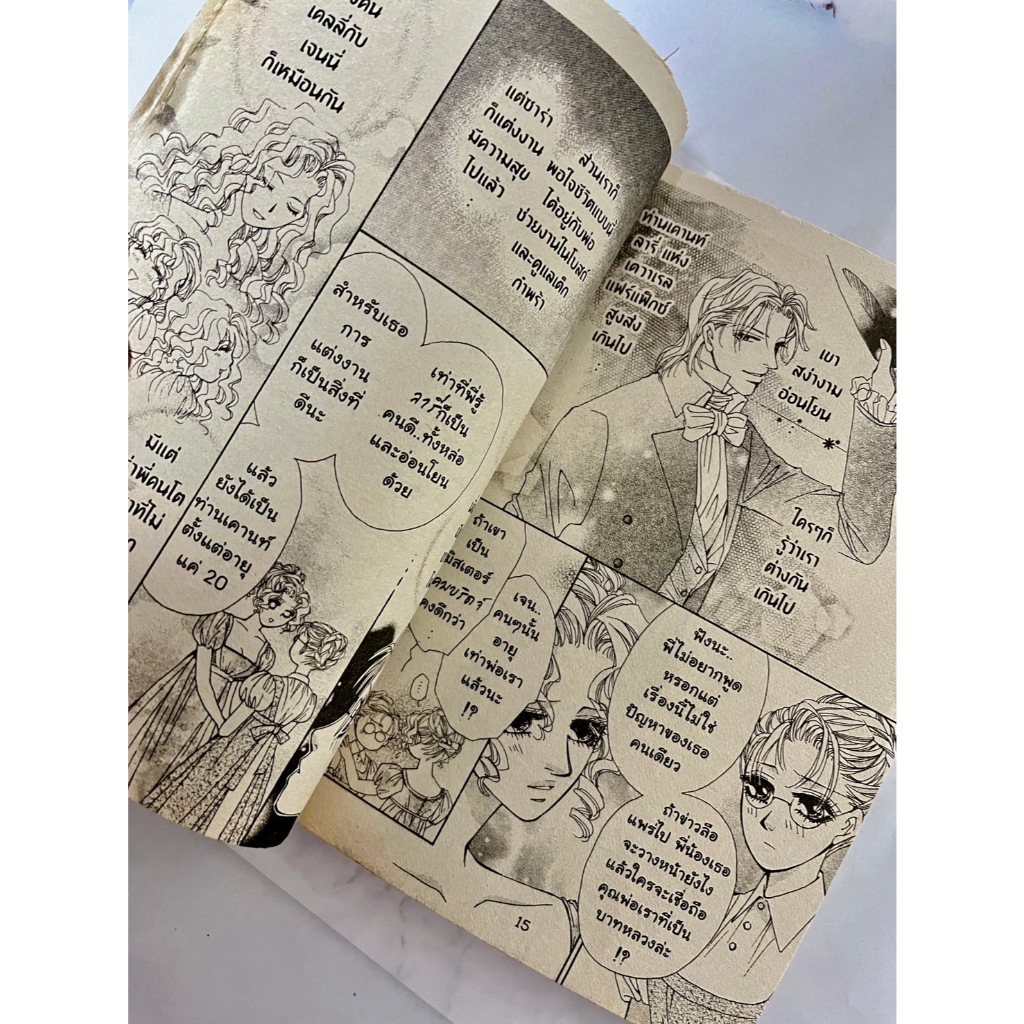 เคลลี่กับ
เจนนี่
ก็เหมือนกัน
แต่ซาร่า
ก็แต่งงาน
มีความสุข
ไปแล้ว
...
ส่วนเราก็
พอใจชีวิตแบบนี้
ได้อยู่กับพ่อ
ช่วยงานในโบสถ์
และดูแลเด็ก
กำพร้า
สำหรับเธอ
การ
แต่งงาน
ก็เป็นสิ่งที่
ดีนะ
เท่าที่พี่รู้
ลารี่ก็เป็น
คนดี..ทั้งหล่อ
และอ่อนโยน
ด้วย
แล้ว
ยังได้เป็น
ท่านเคานท์
ตั้งแต่อายุ
แค่ 20
มีแต่
ท่านเคานท์
ลารี่ แห่ง
เดวาเรล
แฟร์แฟ็กซ์
สูงส่ง
เกินไป
เขา
สง่างาม
อ่อนโยน
...
ใครๆก็
รู้ว่าเรา
ต่างกัน
เกินไป
ถ้าเขา
เป็น
มิสเตอร์
คงดีกว่า
เจน..
คนๆนั้น
อายุ
เท่าพ่อเรา
แล้วนะ
!?
....
ฟังนะ..
พี่ไม่อยากพูด
หรอกแต่
เรื่องนี้ไม่ใช่
ปัญหาของเธอ
คนเดียว
ถ้าข่าวลือ
แพร่ไป พี่น้องเธอ
จะวางหน้ายังไง
แล้วใครจะเชื่อถือ
คุณพ่อเราที่เป็น
บาทหลวงล่ะ
!?
15